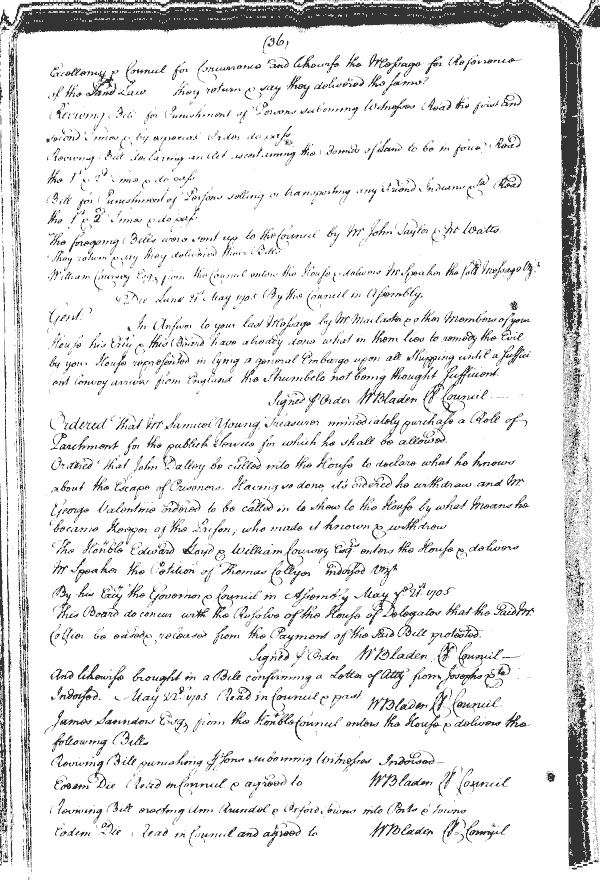 (36)
Excellency & Council for Concurrence and likewise the Message for Referrence
of the Land Law they return & say they delivered the same
Reviving Bill for Punishment of Persons suborning Witnesses Read the first and
second times & by especial Order do pass
Reviving Bill declaring an Act ascertaining the Bounds of Land to be in force Read
the 1st & 2d time & do pass
Bill for Punishment of Persons selling or transporting any friend Indians &ca Read
the 1st & 2d times & do pass
The foregoing Bills were sent up to the Council by Mr John Taylor & Mr Watts
They return & say they delivered their Bills
William Coursey Esqr from the Council enters the House & delivers Mr Speaker the foll: Message Vizt
Die Lunæ 21st May 1705 By the Council in Assembly.
Gent.
In Answer to your last Message by Mr Macclaster & other Members of your
House his Excy & this Board have already done what in them lies to remedy the Evil
by your House represented in lying a general Embargo upon all Shipping until a suffici
ent Convoy arrives from England the Strumbelo not being thought sufficient.
Signed p Order WBladen Cl Council
Ordered that Mr Samuel Young Treasurer immediately purchase a Role of
Parchment for the publick Service for which he shall be allowed.
Ordered that John Dalley be called into the House to declare what he knows
about the Escape of Prisoners. Having so done, it's ordered he withdraw and Mr
George Valentine ordered to be called in to show to the House by what Means he
became Keeper of the Prison, who made it known & withdrew
The Honble Edward Lloyd & William Coursey Esqr enters the House & delivers
Mr Speaker the Petition of Thomas Collyer indorsed Vizt
By his Excy the Governor & Council in Assembly May ye 21st 1705
This Board do concur with the Resolve of the House of Delegates that the said Mr
Collier be eased & released from the Payment of the said Bill protested.
Signed p Order WBladen Cl Council
And likewise brought in a Bill confirming a Letter of Atty from Josephs &ca
Indorsed. May 21st 1705 Read in Council & past WBladen Cl Council
James Saunders Esqr from the Honble Council enters the House & delivers the
following Bills.
Reviving Bill punishing Psons suborning Witnesses Indorsed
Eodem Die Read in Council & agreed to WBladen Cl Council
Reviving Bill erecting Ann Arundel & Oxford towns into Ports & Towns
Eodem Die Read in Council and agreed to WBladen Cl Council